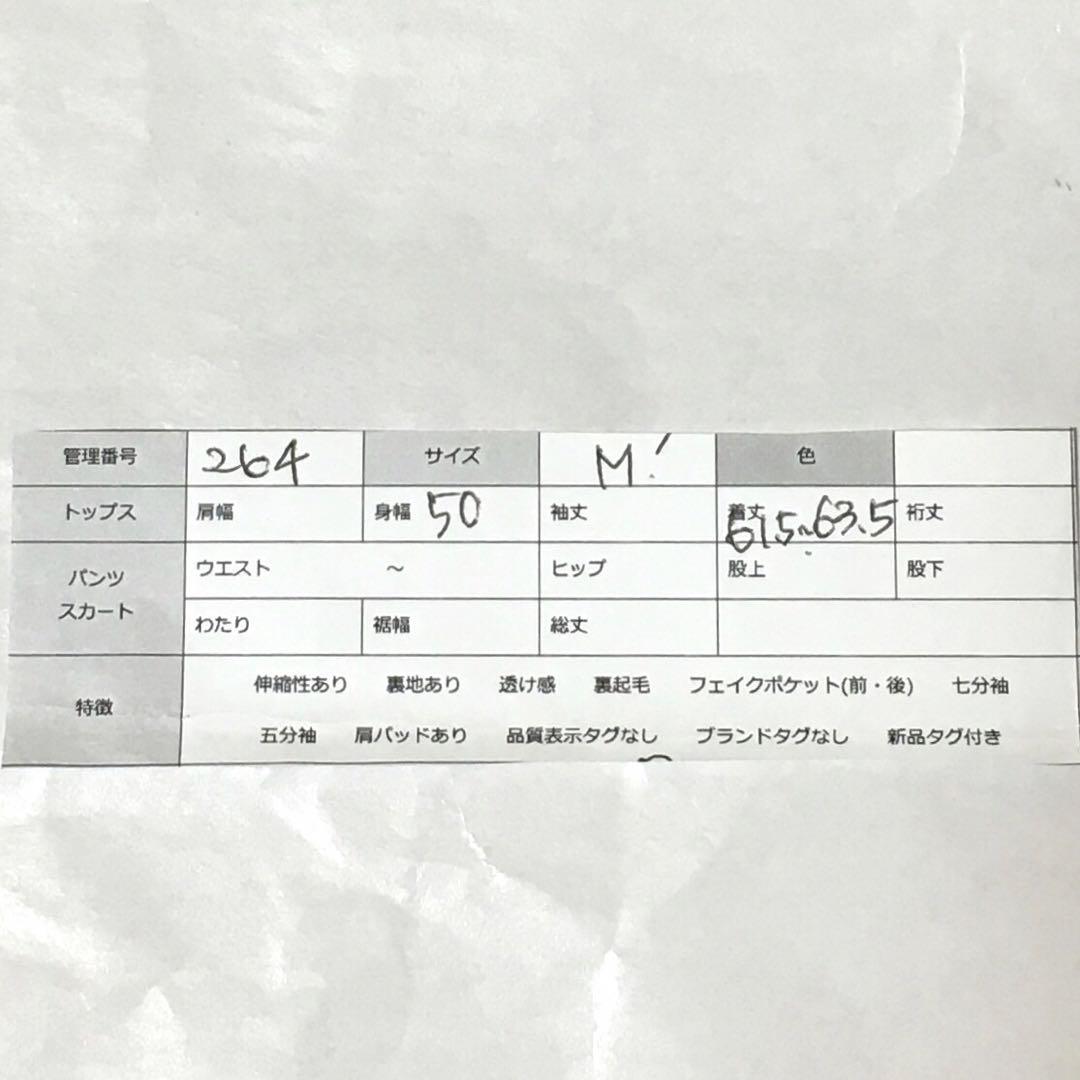 管理番号 264 サイズ M! 色
トップス 肩幅 身幅 50 袖丈 着丈 61.5~63.5 裄丈
パンツ スカート ウエスト ～ ヒップ 股上 股下
わたり 裾幅 総丈
特徴 伸縮性あり 裏地あり 透け感 裏起毛 フェイクポケット(前・後) 七分袖
五分袖 肩パッドあり 品質表示タグなし ブランドタグなし 新品タグ付き